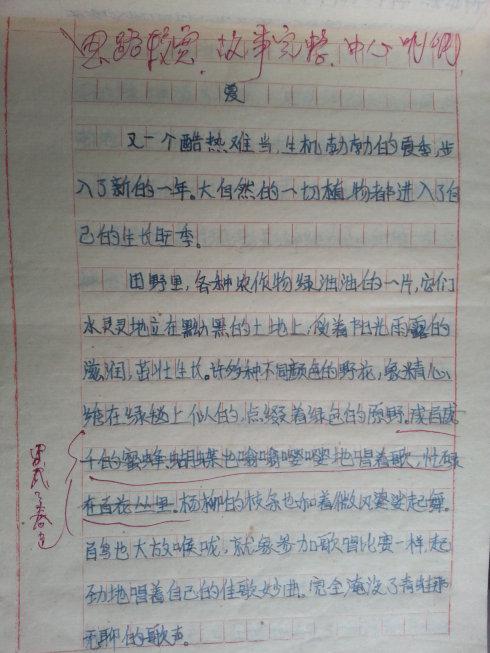 思路较宽，故事完整，中心明确。
爱
又一个酷热难当，生机勃勃的夏季，步
入了新的一年。大自然的一切植物都进入了自
己的生长旺季。
田野里，各种农作物绿油油的一片，它们
水灵灵地立在黝黑的土地上，受着阳光雨露的
滋润，茁壮生长。许多种不同颜色的野花，象精心
绘在绿毯上似的，点缀着绿色的原野。成百成
千的蜜蜂、蝴蝶也嗡嗡嘤嘤地唱着歌，忙碌
在百花丛里。杨柳的枝条也和着微风婆娑起舞。
百鸟也大放喉咙，就象参加歌唱比赛一样，起
劲地唱着自己的佳歌妙曲。完全淹没了青蛙那
无聊的歌声。